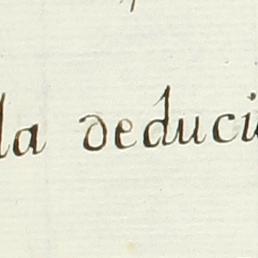 la deduci